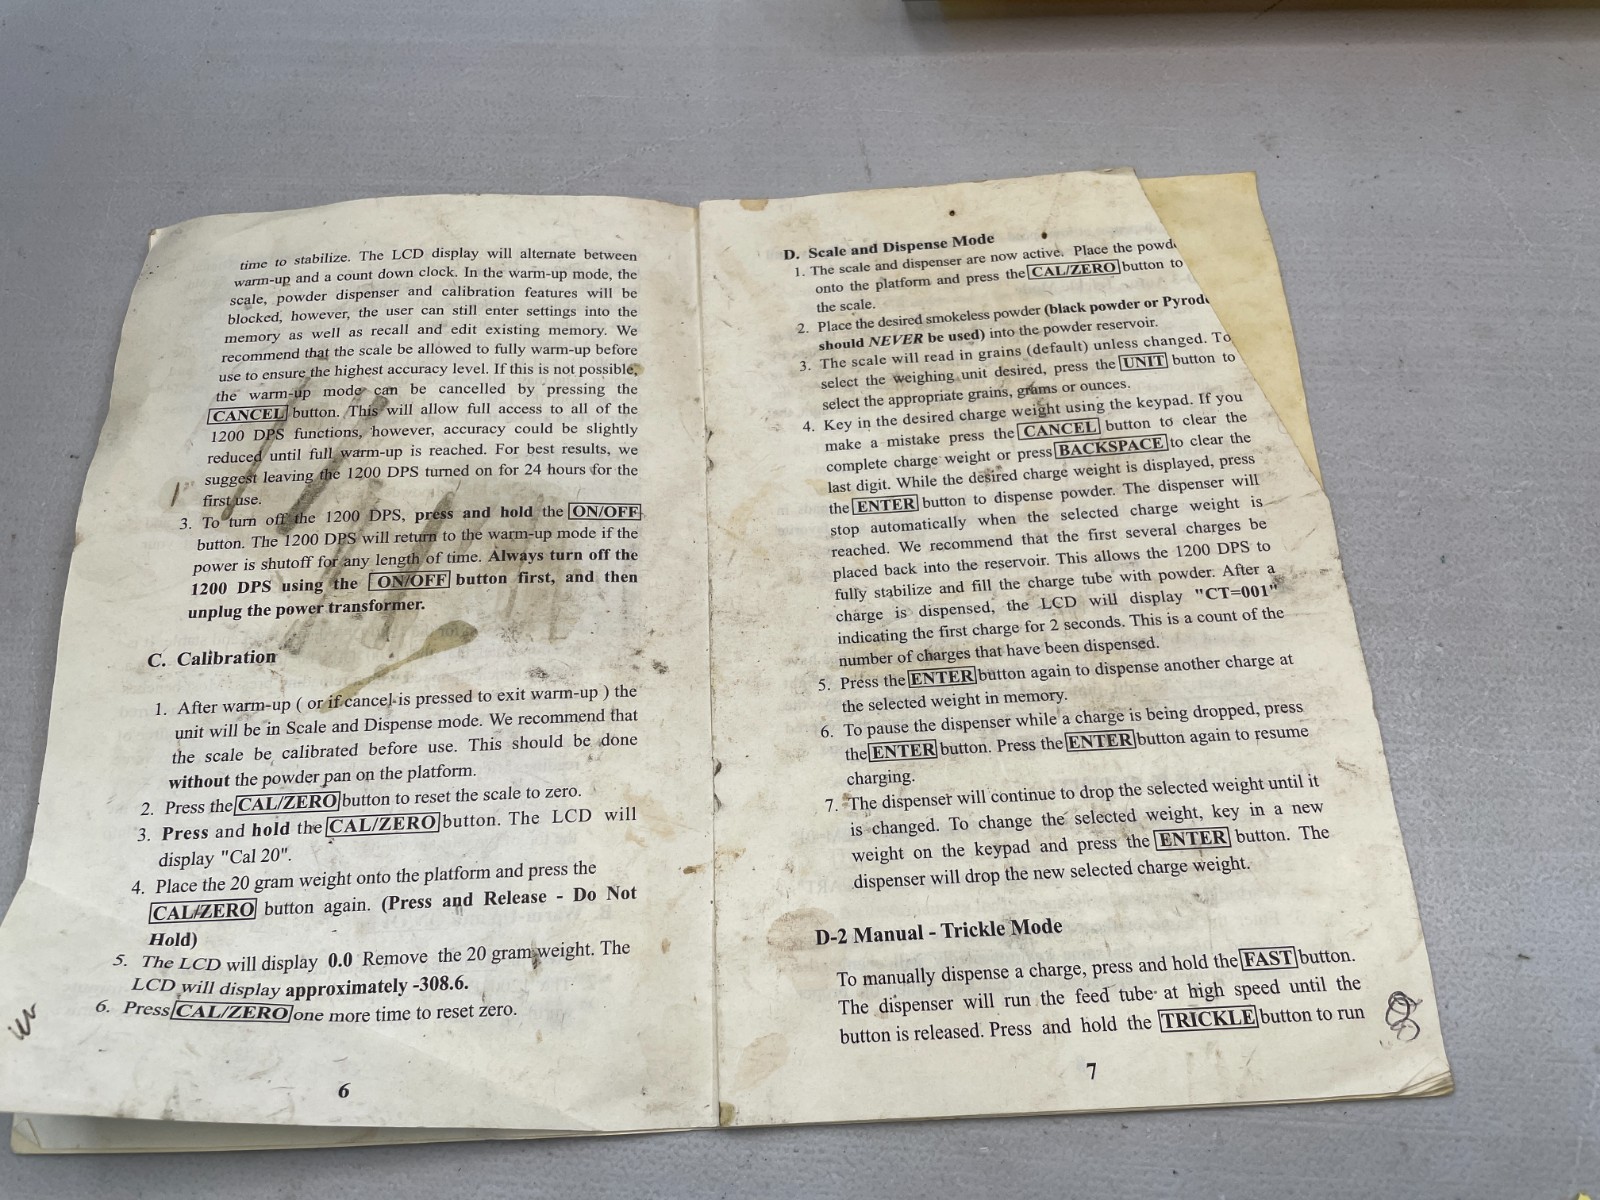 time to stabilize. The LCD display will alternate between
warm-up and a count down clock. In the warm-up mode, the
scale, powder dispenser and calibration features will be
blocked, however, the user can still enter settings into the
memory as well as recall and edit existing memory. We
recommend that the scale be allowed to fully warm-up before
use to ensure the highest accuracy level. If this is not possible,
the warm-up mode can be cancelled by pressing the
CANCEL button. This will allow full access to all of the
1200 DPS functions, however, accuracy could be slightly
reduced until full warm-up is reached. For best results, we
suggest leaving the 1200 DPS turned on for 24 hours for the
first use.
3. To turn off the 1200 DPS, press and hold the ON/OFF
button. The 1200 DPS will return to the warm-up mode if the
power is shutoff for any length of time. Always turn off the
1200 DPS using the ON/OFF button first, and then
unplug the power transformer.
C. Calibration
1. After warm-up ( or if cancel is pressed to exit warm-up ) the
unit will be in Scale and Dispense mode. We recommend that
the scale be calibrated before use. This should be done
without the powder pan on the platform.
2. Press the CAL/ZERO button to reset the scale to zero.
3. Press and hold the CAL/ZERO button. The LCD will
display "Cal 20".
4. Place the 20 gram weight onto the platform and press the
CAL/ZERO button again. (Press and Release - Do Not
Hold)
5. The LCD will display 0.0 Remove the 20 gram weight. The
LCD will display approximately -308.6.
6. Press CAL/ZERO one more time to reset zero.
6
D. Scale and Dispense Mode
1. The scale and dispenser are now active. Place the
onto the platform and press the CAL/ZERO button to
the scale.
2. Place the desired smokeless powder (black powder or
should NEVER be used) into the powder reservoir.
3. The scale will read in grains (default) unless changed. To
select the weighing unit desired, press the UNIT button to
select the appropriate grains, grams or ounces.
4. Key in the desired charge weight using the keypad. If you
make a mistake press the CANCEL button to clear the
complete charge weight or press BACKSPACE to clear the
last digit. While the desired charge weight is displayed, press
the ENTER button to dispense powder. The dispenser will
stop automatically when the selected charge weight is
reached. We recommend that the first several charges be
placed back into the reservoir. This allows the 1200 DPS to
fully stabilize and fill the charge tube with powder. After a
charge is dispensed, the LCD will display "CT=001"
indicating the first charge for 2 seconds. This is a count of the
number of charges that have been dispensed.
5. Press the ENTER button again to dispense another charge at
the selected weight in memory.
6. To pause the dispenser while a charge is being dropped, press
the ENTER button. Press the ENTER button again to resume
charging.
7. The dispenser will continue to drop the selected weight until it
is changed. To change the selected weight, key in a new
weight on the keypad and press the ENTER button. The
dispenser will drop the new selected charge weight.
D-2 Manual - Trickle Mode
To manually dispense a charge, press and hold the FAST button.
The dispenser will run the feed tube at high speed until the
button is released. Press and hold the TRICKLE button to run
7